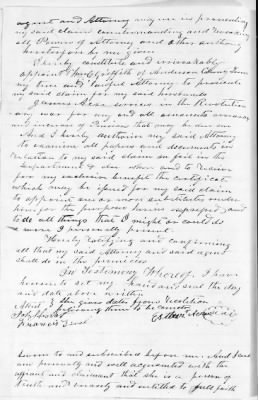 agent and Attorney may use in prosecuting
my said claim countermanding and revoking
all Powers of Attorney and other authority
heretofore by me given
I hereby constitute and irrevocably
appoint of Anderson County Tenn
my true and lawful Attorney to prosecute
my said claim for my said husbands
services in the Revolution
ary war for any and all amounts
and increase of Pensions that may be due me
And I hereby authorize my said Attorney
to examine all papers and documents in
relation to my said claim on file in the
department & and to receive
for my exclusive benefit the certificate
which may be issued for my said claim
to appoint one or more substitutes under
him for the purpose herein expressed and
to do all things that I might or could do
were I personally present.
Hereby ratifying and confirming
all that my said Attorney and agent
shall do in the premises
In Testimony Whereof, I have
hereunto set my hand and seal the day
and date above written
Attest she gives dates from recollection
believing them to be correct

Sworn to and subscribed before me. And I said
am personally and well acquainted with the
affiant and claimant that she is a person of
truth and veracity and entitled to full faith